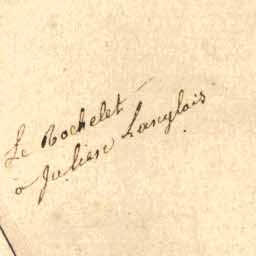 Le Rochelet
a Juliene Langlois